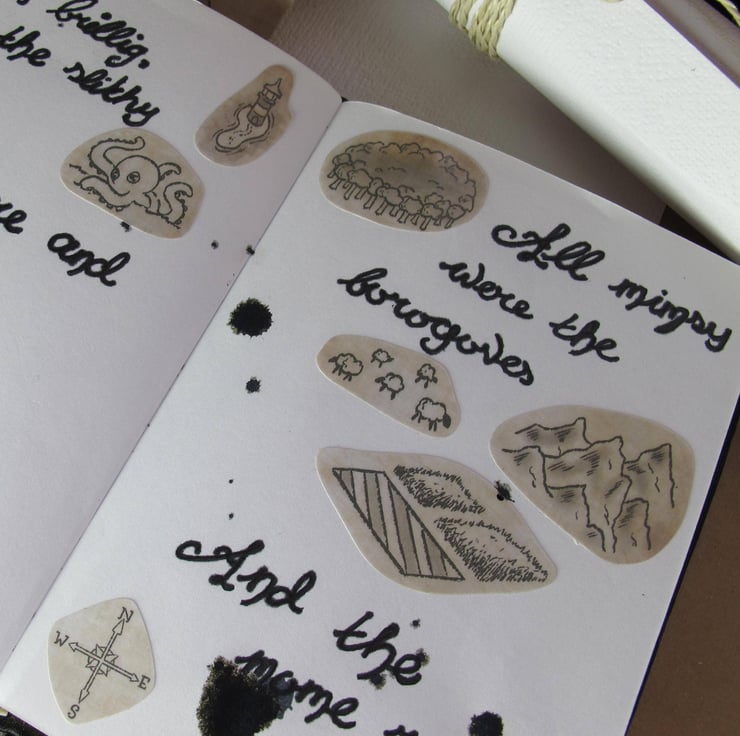 brillig,
the slithy
and
All mimsy
were the
borogoves
And the
mome
N
W
E
S